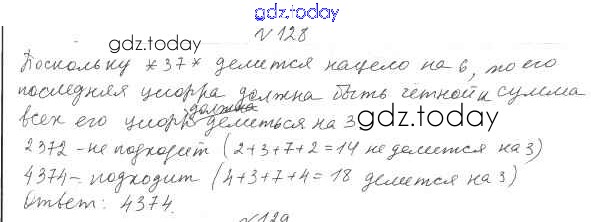 gdz.today
№ 128
gdz.today
Поскольку *37* делится нацело на 6, то его
последняя цифра должна быть чётной и сумма
всех его цифр должна делиться на 3
gdz.today
2372 - не подходит (2+3+7+2=14 не делится на 3)
4374 - подходит (4+3+7+4=18 делится на 3)
Ответ: 4374.
№ 129